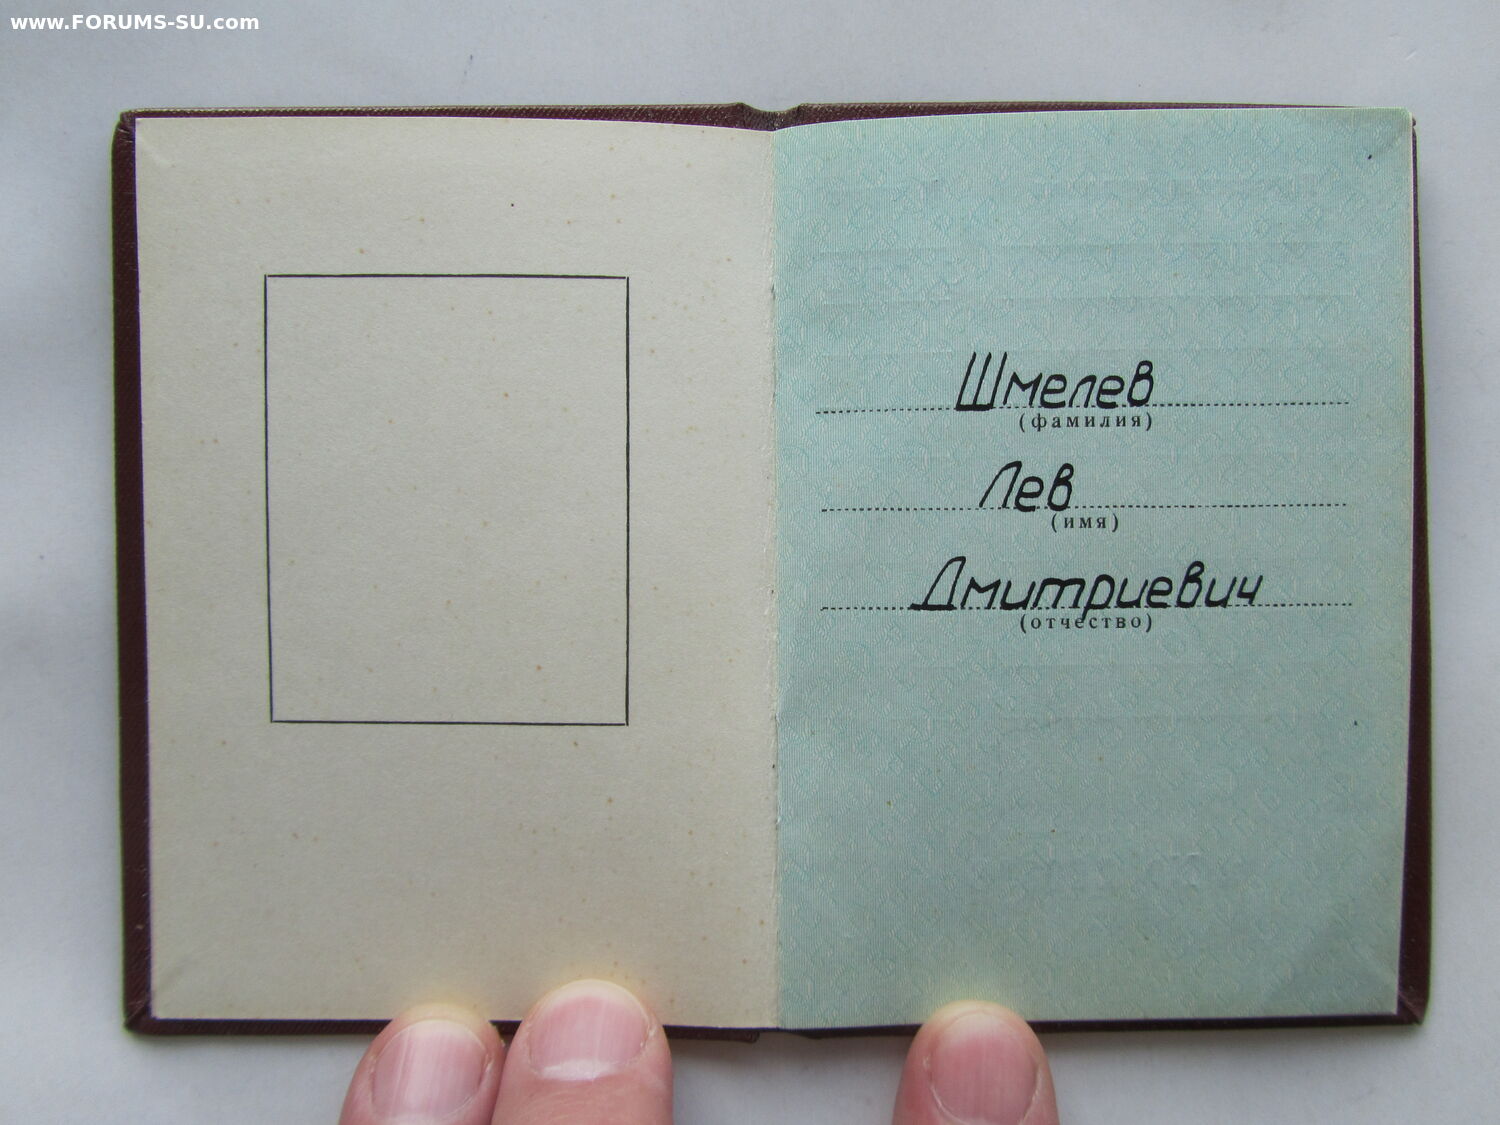 www.FORUMS-SU.com
Шмелев
(фамилия)
Лев
(имя)
Дмитриевич
(отчество)